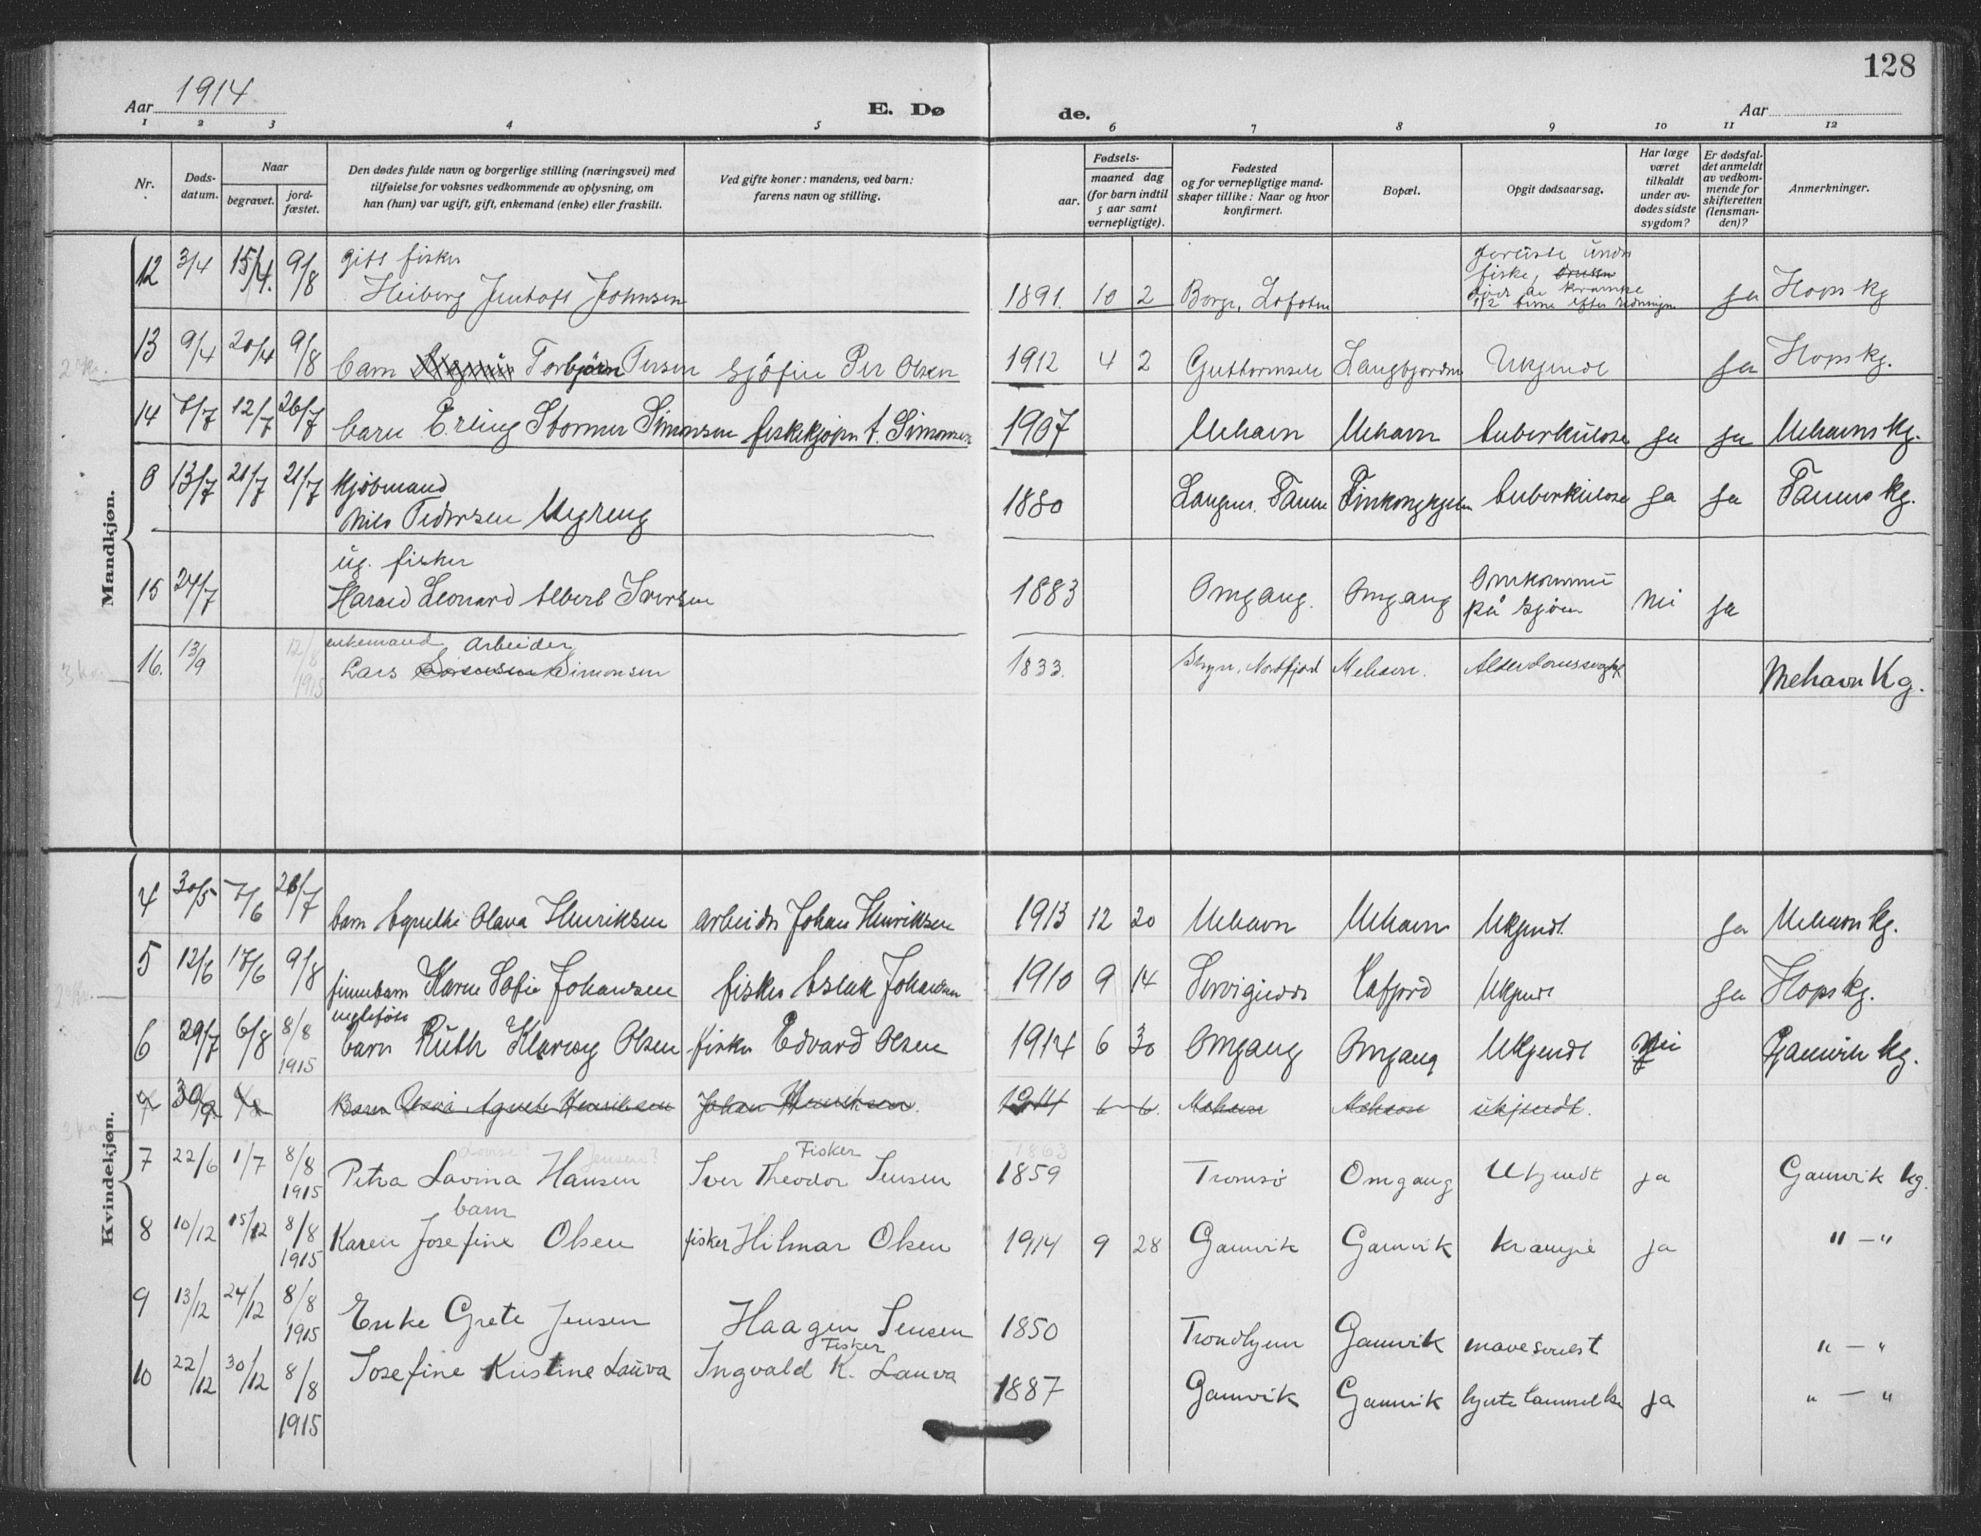 128
Aar 1914
E. Dø de.
Aar
1 2 3 4 5 6 7 8 9 10 11 12
Nr.
Døds-
datum.
Naar
begravet.
jord-
fæstet.
Den dødes fulde navn og borgerlige stilling (næringsvei) med
tilføielse for voksnes vedkommende av oplysning, om
han (hun) var ugift, gift, enkemand (enke) eller fraskilt.
Ved gifte koner: mandens, ved barn:
farens navn og stilling.
Fødsels-
aar. maaned dag
(for barn indtil
5 aar samt
vernepligtige).
Fødested
og for vernepligtige mand-
skaper tillike: Naar og hvor
konfirmert.
Bopæl.
Opgit dødsaarsag.
Har læge
været
tilkaldt
under av-
dødes sidste
sygdom?
Er dødsfal-
det anmeldt
av vedkom-
mende for
skifteretten
(lensman-
den)?
Anmerkninger.
Mandkjøn.
gift fisker
12 3/4 15/4. 9/8 Heiberg Jentoft Johnsen 1891. 10 2 Borge, Lofoten
forliste under
fiske,
død av krampe
1/2 time efter redningen
ja Hops kg
13 9/4 20/4 9/8 barn Torbjørn Persen Sjøfin Per Olsen 1912 4 2 Guttormsen Langfjorden Ukjendt ja Hops kg.
14 7/7 12/7 26/7 barn Erling Stormer Simonsen fiskekjøper A. Simonsen 1907 Mehavn Mehavn tuberkulose ja ja Mehavns kg.
0 13/7 21/7 21/7 Kjøbmand
Nils Pedersen Nygreng 1880 Langnes, Tanen Finkongkjeilen tuberkulose ja ja Tanens kg.
ug. fisker
15 24/7 Harald Leonard Albert Iversen 1883 Omgang. Omgang Omkommet
på sjøen nei ja
enkemand arbeider
16. 13/9 12/8 1915 Lars Sørensen Simonsen 1833. Stryn, Nordfjord Mehavn. Alderdomssvaghet Mehavn Kg.
Kvindekjøn.
4 30/5 7/6 26/7 barn Agnethe Olava Henriksen arbeider Johan Henriksen 1913 12 20 Mehavn Mehavn Ukjendt. ja Mehavn kg.
5 12/6 17/6 9/8 finnebarn Karen Sofie Johansen fisker Aslak Johansen 1910 9 14 Kafjord Ukjendt ja Hops kg.
6 29/7 6/8 8/8 1915 barn Ruth Klaroey Olsen fisker Edvard Olsen 1914 6 30 Omgang Omgang Ukjendt nei Gamvik kg.
7 30/9 Barn Olava Agnete Henriksen Johan Henriksen. 1914 6 6. Mehavn Mehavn ukjendt.
Jensen? Fisker 1863
7 22/6 1/7 8/8 1915 Petra Lavina Hansen Iver Theodor Jensen 1859 Tromsø Omgang Ukjendt ja Gamvik kg.
barn
8 10/12 15/12 8/8 1915 Karen Josefine Olsen fisker Hilmar Olsen 1914 9 28 Gamvik Gamvik Krampe ja " — "
9 13/12 24/12 8/8 1915 Enke Grete Jensen Haagen Jensen 1850 Trondhjem Gamvik mavesvulst " — "
Fisker
10 22/12 30/12 8/8 1915 Josefine Kristine Lauva Ingvald K. Lauva 1887 Gamvik Gamvik ja " — "